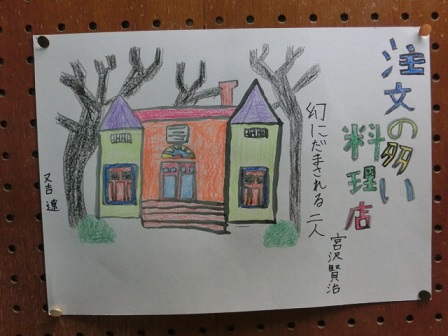 注文の多い
料理店
幻にだまされる二人
宮沢賢治
又吉遼